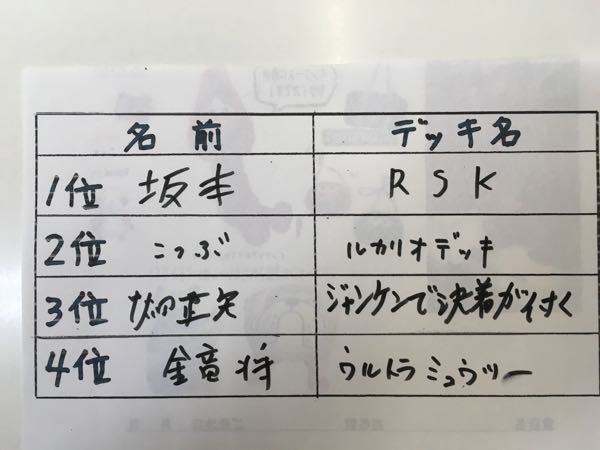 名前 デッキ名
1位 坂本 RSK
2位 こつぶ ルカリオデッキ
3位 ジャンケンで決着が付く
4位 金竜将 ウルトラミュウツー